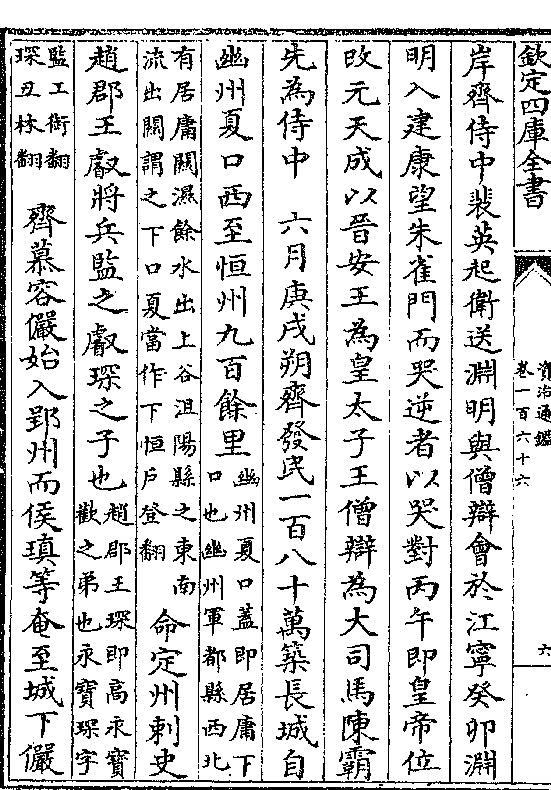 欽定四庫全書
資治通鑑
卷一百六十六
六
岸齊侍中裴英起衛送淵明與僧辯會於江寧癸卯淵
明入建康望朱雀門而哭逆者以哭對丙午即皇帝位
改元天成以晉安王為皇太子王僧辯為大司馬陳霸
先為侍中　六月庚戌朔齊發民一百八十萬築長城自
幽州夏口西至恒州九百餘里
幽州夏口蓋即居庸下
口也幽州軍都縣西北
有居庸關濕餘水出上谷沮陽縣之東南
流出關謂之下口夏當作下恒戶登翻
命定州刺史
趙郡王叡將兵監之叡琛之子也
趙郡王琛即高永寶
歡之弟也永寶琛字
監工銜翻
琛丑林翻
齊慕容儼始入郢州而侯瑱等奄至城下儼